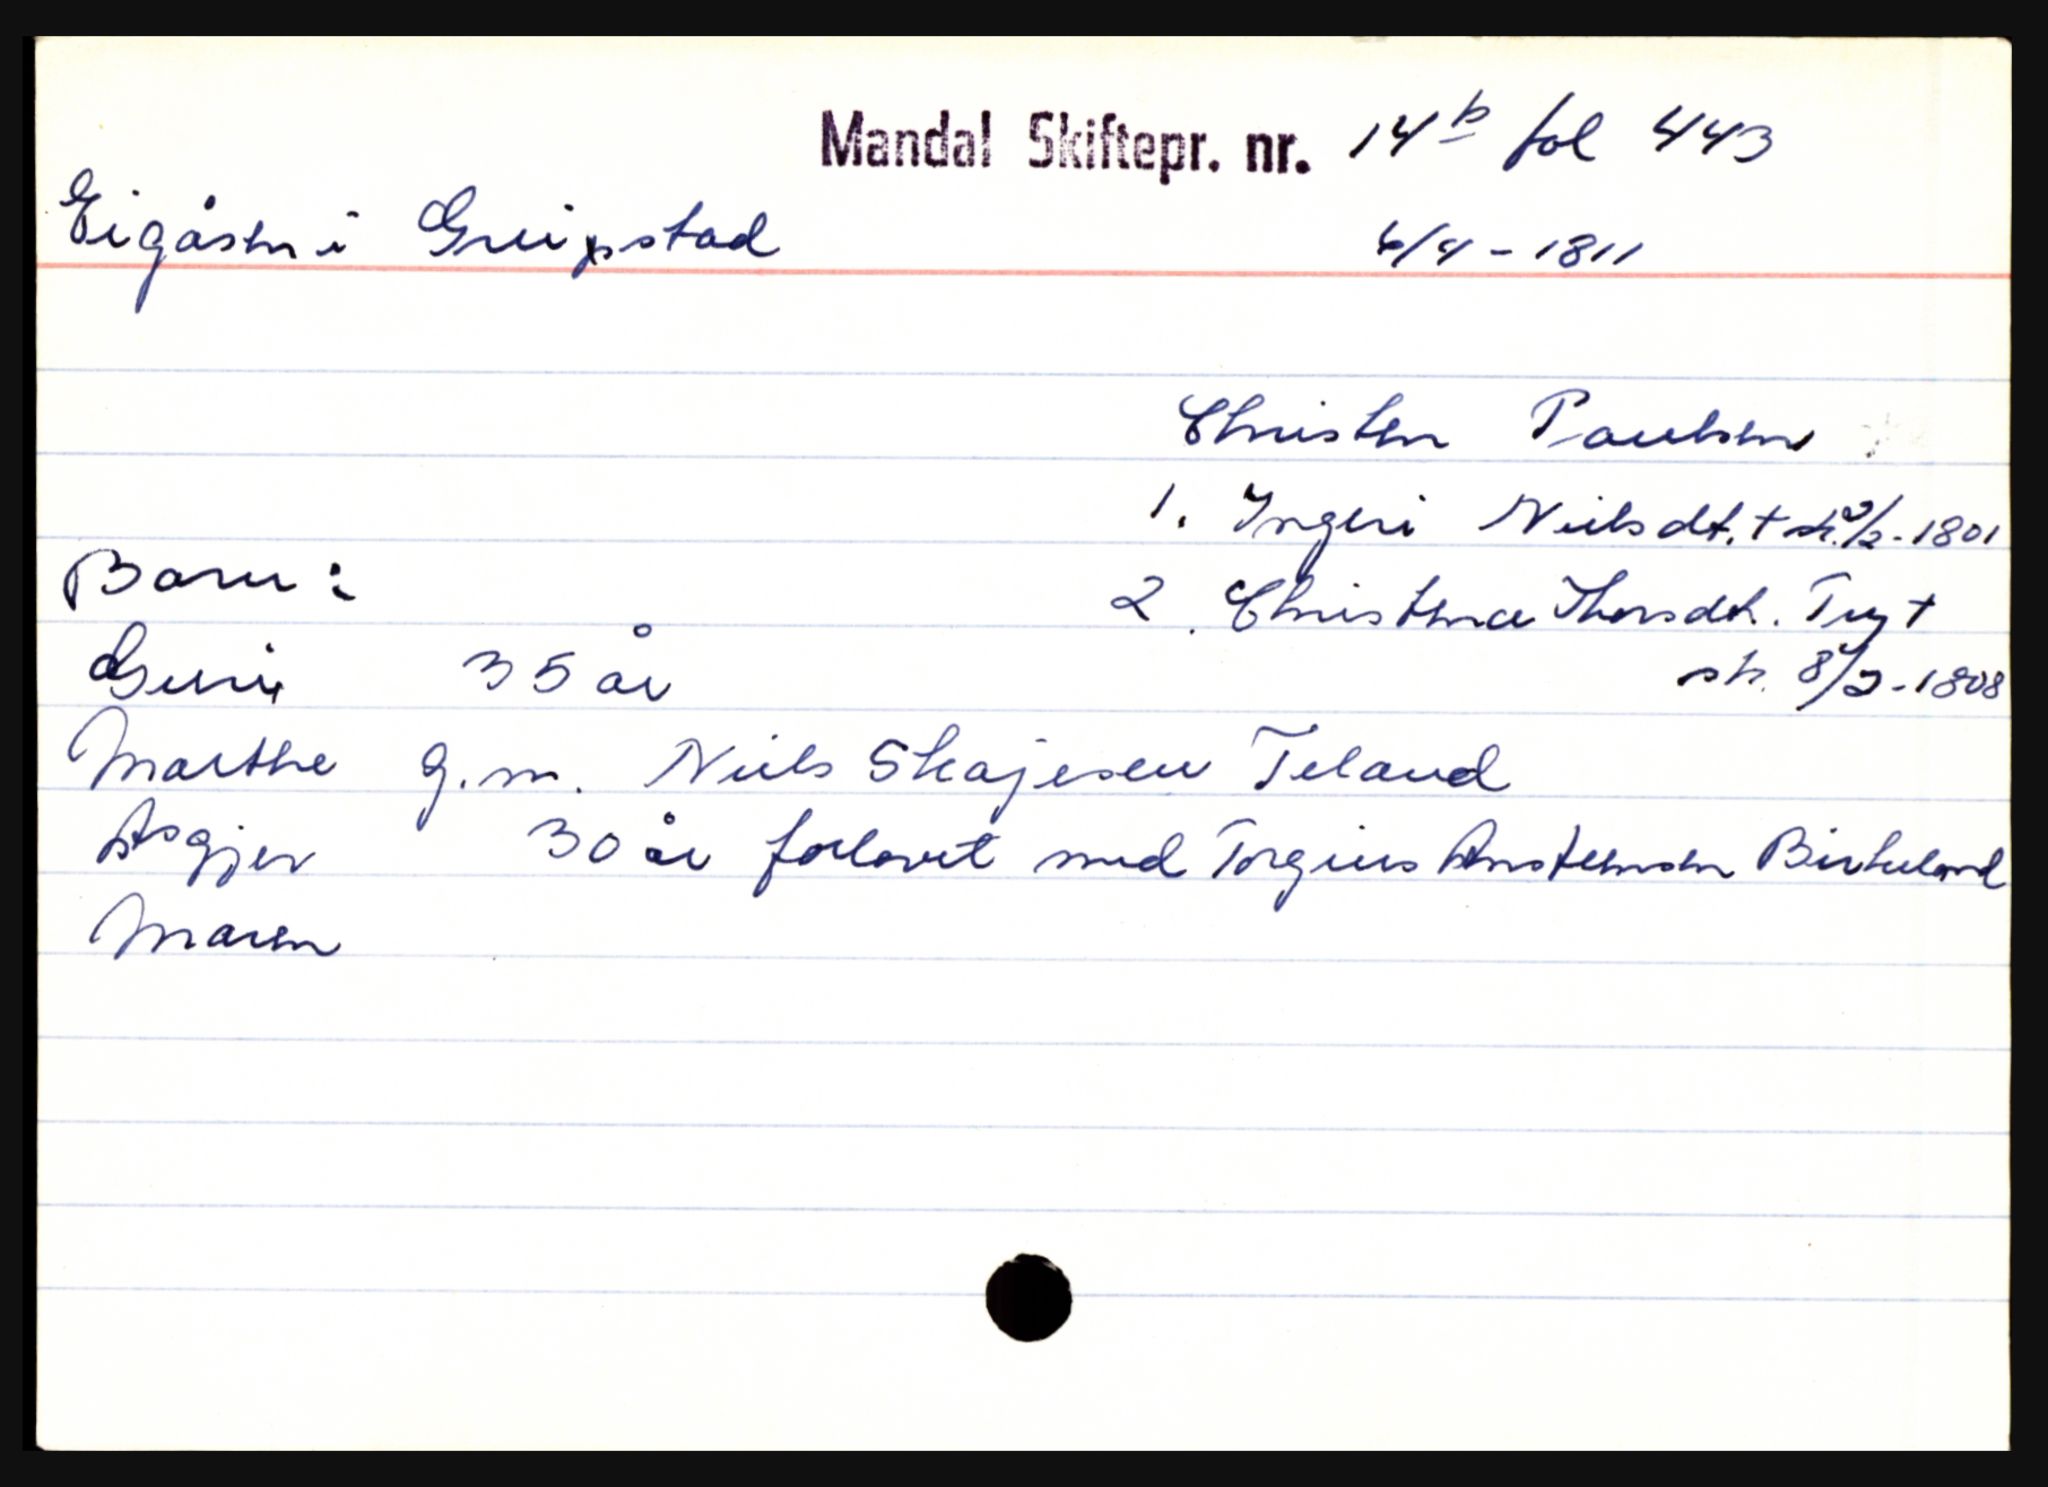 Mandal Skiftepr. nr. 14b fol 443
Eigåsen i Greipstad 6/4 - 1811
Christen Paulsen
1. Ingeri Nielsdt. + sk. 2/2 - 1801
Barn:
2. Christense Thorsdt. Try +
Guri 35 år
sk. 8/2 - 1808
Marthe g.m. Niels Skajesen Teland
Asgjer 30 år forlovet med Torgius Anstensen Birkeland
Maren